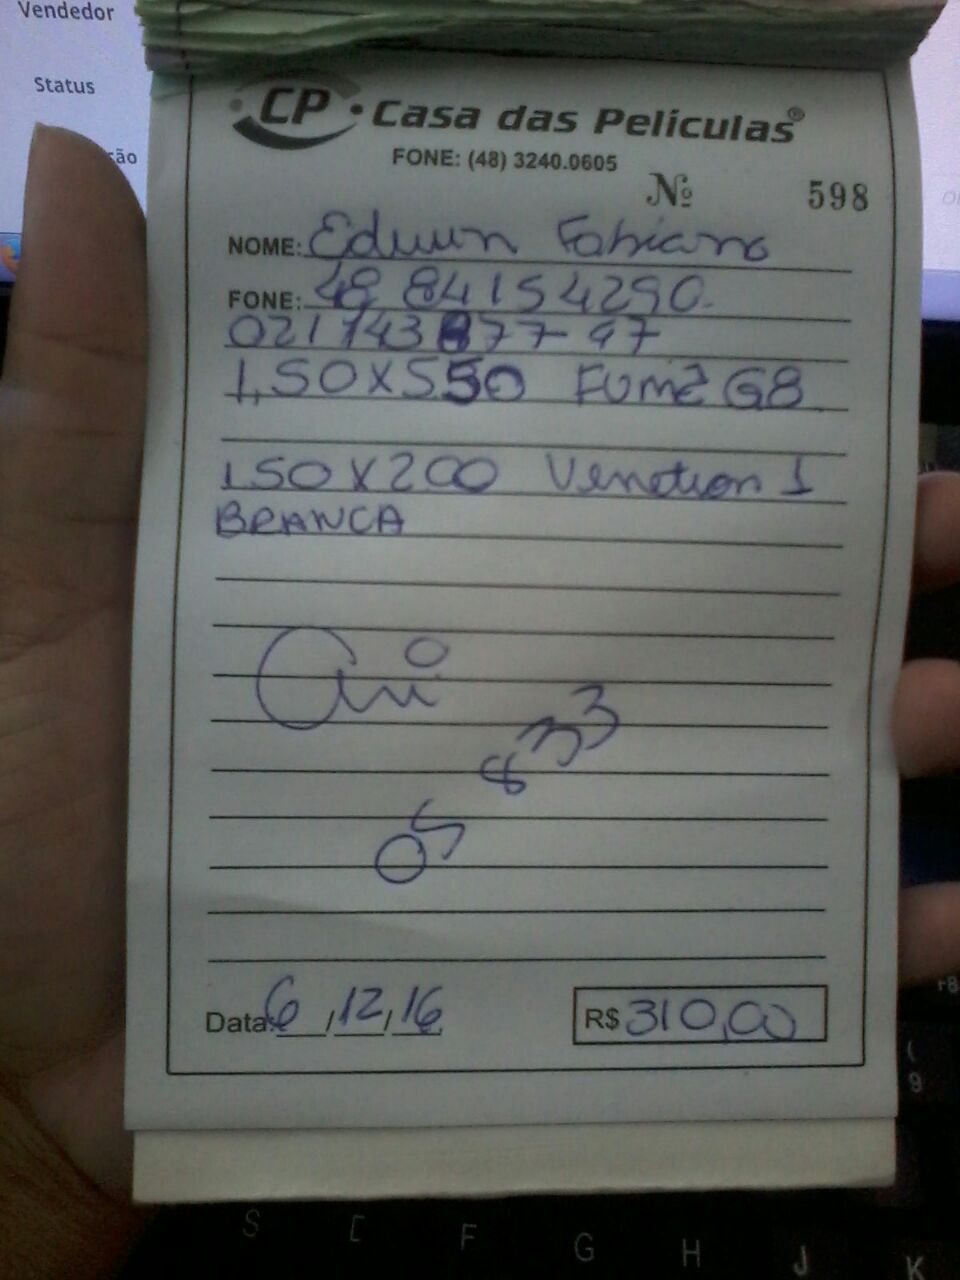 Vendedor
Status
ção
CP Casa das Películas®
FONE: (48) 3240.0605
Nº 598
NOME: Edwin Fabiano
FONE: 48 84154290
021743877-97
1,50X550 Fumê G8
1,50X200 Venetian 1
BRANCA
OS 833
Data: 6/12/16
R$ 310,00
r8
(
9
S D F G H J K